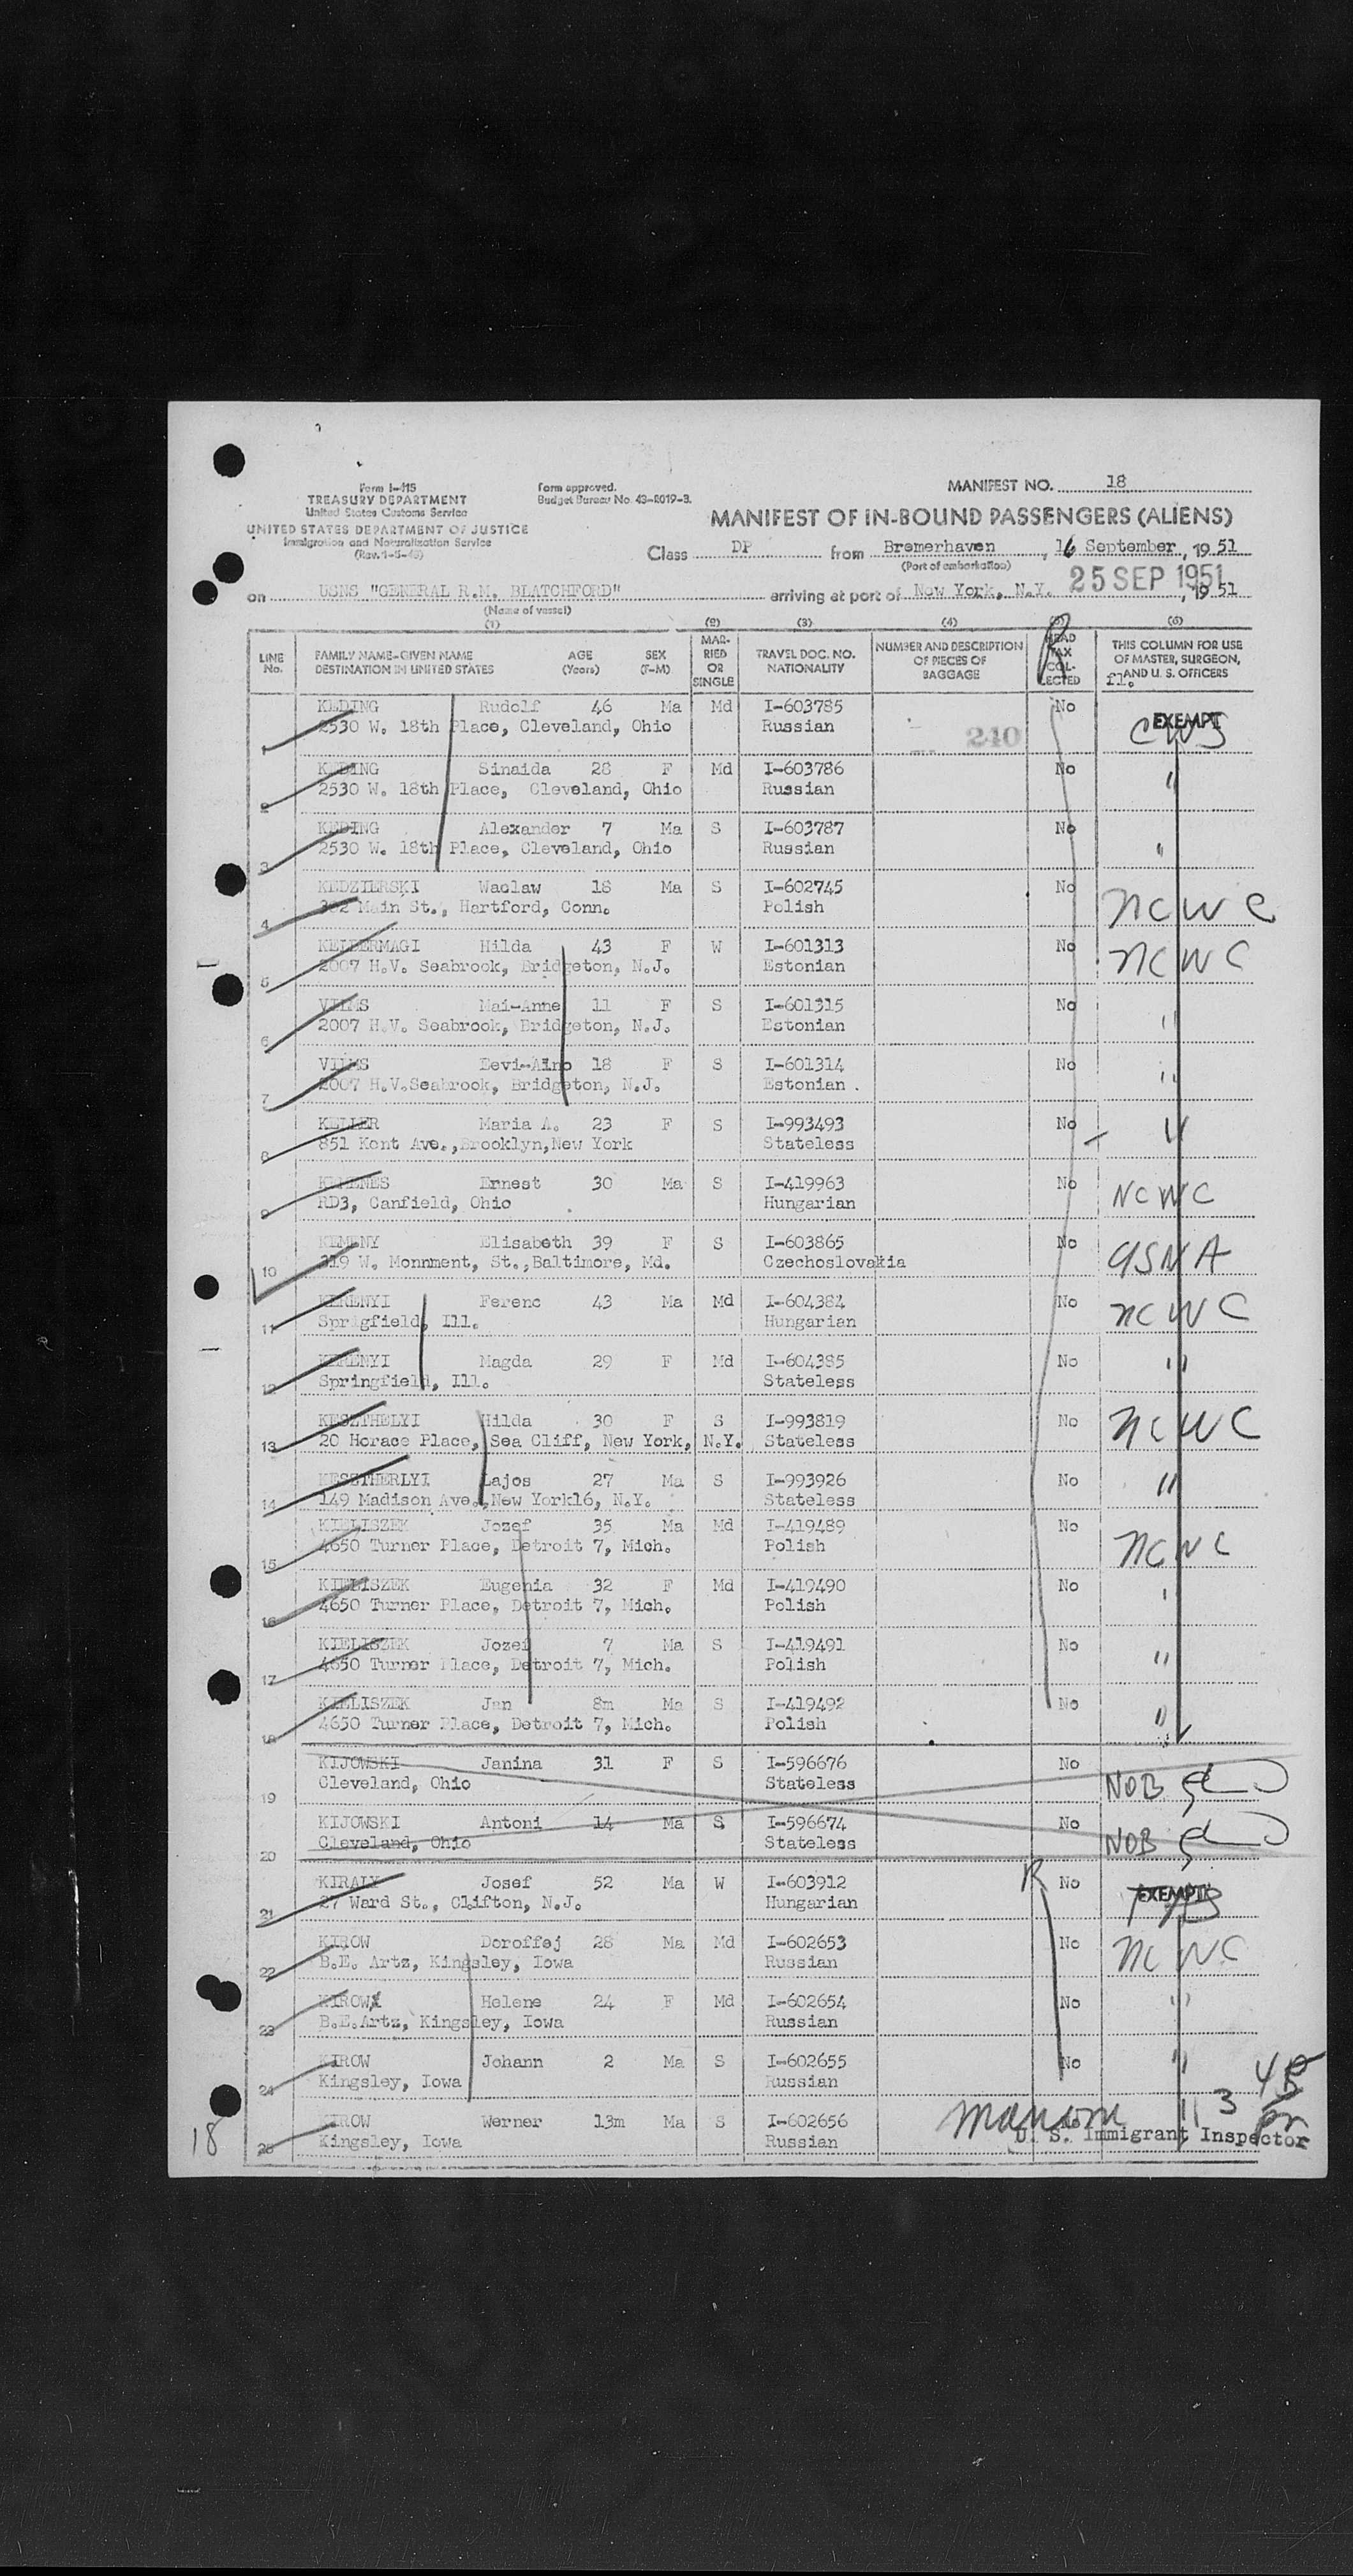 Form I-415
TREASURY DEPARTMENT
United States Customs Service
UNITED STATES DEPARTMENT OF JUSTICE
Immigration and Naturalization Service
Form approved.
Budget Bureau No. 43-R019-3.
MANIFEST NO. 18
MANIFEST OF IN-BOUND PASSENGERS (ALIENS)
Class DP from Bremerhaven, 16 September, 1951
(Port of embarkation)
25 SEP 1951
on USNS "GENERAL R.M. BLATCHFORD" arriving at port of New York, N.Y. , 1951
(Name of vessel)
(1) (2) (3) (4) (5) (6)
LINE No. FAMILY NAME-GIVEN NAME DESTINATION IN UNITED STATES AGE (Years) SEX (F-M) MARRIED OR SINGLE TRAVEL DOC. NO. NATIONALITY NUMBER AND DESCRIPTION OF PIECES OF BAGGAGE HEAD TAX COLLECTED THIS COLUMN FOR USE OF MASTER, SURGEON, AND U. S. OFFICERS
fl.
R
KEDING Rudolf 46 Ma Md I-603785 No EXEMPT
1 2530 W. 18th Place, Cleveland, Ohio Russian 240 CWS
KEDING Sinaida 28 F Md I-603786 No "
2 2530 W. 18th Place, Cleveland, Ohio Russian
KEDING Alexander 7 Ma S I-603787 No "
3 2530 W. 18th Place, Cleveland, Ohio Russian
KEDZIERSKI Waclaw 18 Ma S I-602745 No NCWC
4 Main St., Hartford, Conn. Polish
KELDERMAGI Hilda 43 F W I-601313 No NCWC
5 2007 H.V. Seabrook, Bridgeton, N.J. Estonian
VILMS Mai-Anne 11 F S I-601315 No "
6 2007 H.V. Seabrook, Bridgeton, N.J. Estonian
VILMS Eevi-Aino 18 F S I-601314 No "
7 2007 H.V.Seabrook, Bridgeton, N.J. Estonian
KELLER Maria A. 23 F S I-993493 No "
8 851 Kent Ave.,Brooklyn,New York Stateless
KELENES Ernest 30 Ma S I-419963 No NCWC
9 RD3, Canfield, Ohio Hungarian
KEMENY Elisabeth 39 F S I-603865 No USNA
10 319 W. Monnment, St.,Baltimore, Md. Czechoslovakia
KERENYI Ferenc 43 Ma Md I-604384 No NCWC
11 Sprigfield, Ill. Hungarian
KERENYI Magda 29 F Md I-604385 No "
12 Springfield, Ill. Stateless
KESZTHELYI Hilda 30 F S I-993819 No NCWC
13 20 Horace Place, Sea Cliff, New York, N.Y. Stateless
KESZTHERLYI Lajos 27 Ma S I-993926 No "
14 149 Madison Ave.,New York16, N.Y. Stateless
KIELISZEK Jozef 35 Ma Md I-419489 No NCWC
15 4650 Turner Place, Detroit 7, Mich. Polish
KIELISZEK Eugenia 32 F Md I-419490 No "
16 4650 Turner Place, Detroit 7, Mich. Polish
KIELISZEK Jozef 7 Ma S I-419491 No "
17 4650 Turner Place, Detroit 7, Mich. Polish
KIELISZEK Jan 8m Ma S I-419492 No "
18 4650 Turner Place, Detroit 7, Mich. Polish
KIJOWSKI Janina 31 F S I-596676 No NOB
19 Cleveland, Ohio Stateless
KIJOWSKI Antoni 14 Ma S I-596674 No NOB
20 Cleveland, Ohio Stateless
KIRALY Josef 52 Ma W I-603912 R No EXEMPT
21 27 Ward St., Clifton, N.J. Hungarian
KIROW Doroffej 28 Ma Md I-602653 No NCWC
22 B.E. Artz, Kingsley, Iowa Russian
KIROW Helene 24 F Md I-602654 No "
23 B.E.Artz, Kingsley, Iowa Russian
KIROW Johann 2 Ma S I-602655 No "
24 Kingsley, Iowa Russian
KIROW Werner 13m Ma S I-602656 "
25 Kingsley, Iowa Russian
U. S. Immigrant Inspector
18